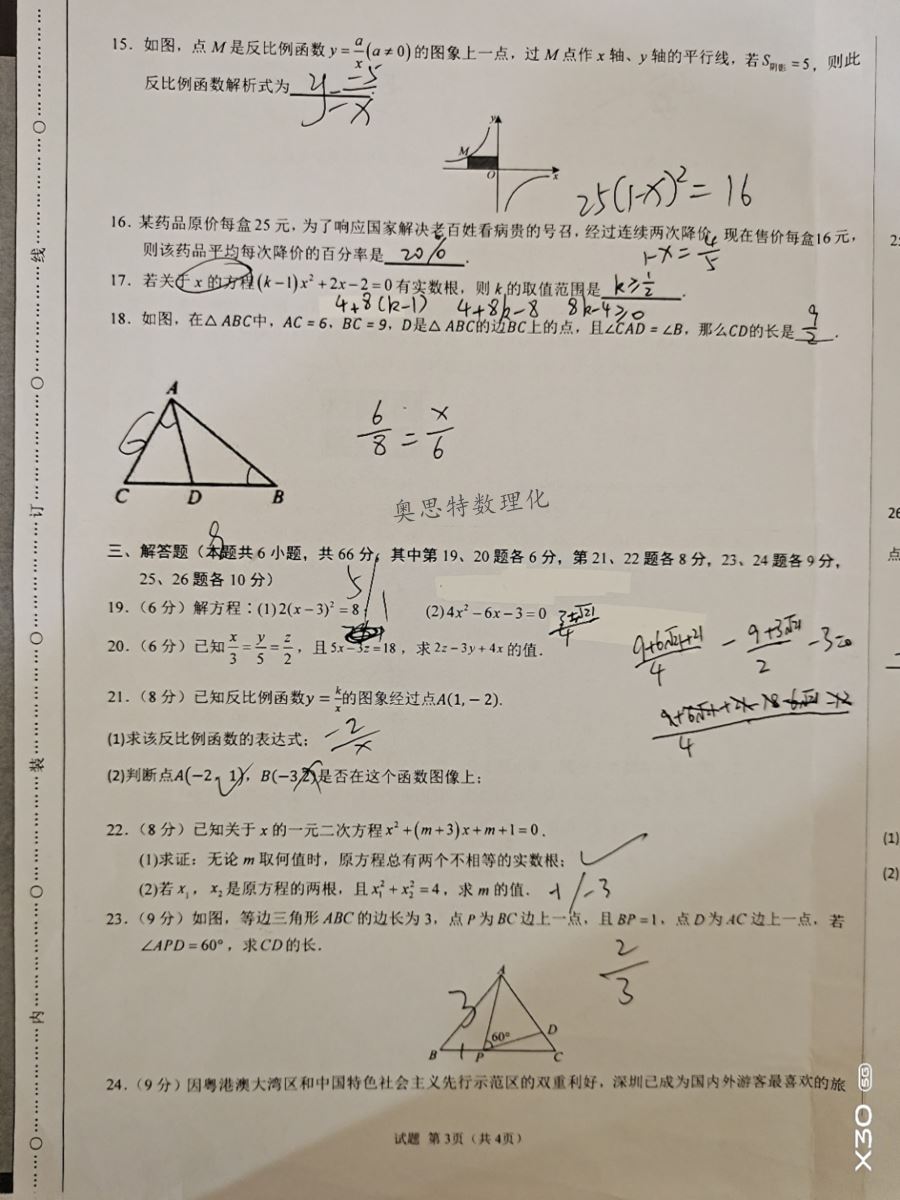 15. 如图，点 M 是反比例函数 y = a/x (a ≠ 0) 的图象上一点，过 M 点作 x 轴、y 轴的平行线，若 S阴影 = 5，则此
反比例函数解析式为 y = -5/x
y
M
O
x
25(1-x)² = 16
16. 某药品原价每盒 25 元，为了响应国家解决老百姓看病贵的号召，经过连续两次降价，现在售价每盒 16 元，
则该药品平均每次降价的百分率是 20% .
1-x = 4/5
17. 若关于 x 的方程 (k-1)x² + 2x - 2 = 0 有实数根，则 k 的取值范围是 k ≥ 1/2 .
4+8(k-1) 4+8k-8 8k-4≥0
18. 如图，在△ABC中，AC = 6，BC = 9，D是△ABC的边BC上的点，且∠CAD = ∠B，那么CD的长是 9/2 .
A
6
C D B
6/8 = x/6
奥思特数理化
三、解答题（本题共 6 小题，共 66 分，其中第 19、20 题各 6 分，第 21、22 题各 8 分，23、24 题各 9 分，
25、26 题各 10 分）
19.（6 分）解方程：(1) 2(x-3)² = 8 5/1 (2) 4x² - 6x - 3 = 0 3±√21/4
20.（6 分）已知 x/3 = y/5 = z/2，且 5x-3z=18，求 2z-3y+4x 的值．
9+6√21+21/4 - 9+3√21/2 - 3=0
21.（8 分）已知反比例函数y = k/x的图象经过点A(1, -2).
(1)求该反比例函数的表达式； -2/x
(2)判断点A(-2，1)，B(-3,2)是否在这个函数图像上；
22.（8 分）已知关于 x 的一元二次方程 x² + (m+3)x + m + 1 = 0 .
(1)求证：无论 m 取何值时，原方程总有两个不相等的实数根；
(2)若 x₁，x₂ 是原方程的两根，且 x₁² + x₂² = 4，求 m 的值． -1/-3
23.（9 分）如图，等边三角形 ABC 的边长为 3，点 P 为 BC 边上一点，且 BP = 1，点 D 为 AC 边上一点，若
∠APD = 60°，求 CD 的长．
2/3
A
3
60° D
B 1 P C
24.（9 分）因粤港澳大湾区和中国特色社会主义先行示范区的双重利好，深圳已成为国内外游客最喜欢的旅
试题 第 3页（共 4页）
线
订
装
内
26
点
(1)
(2)
X30 5G